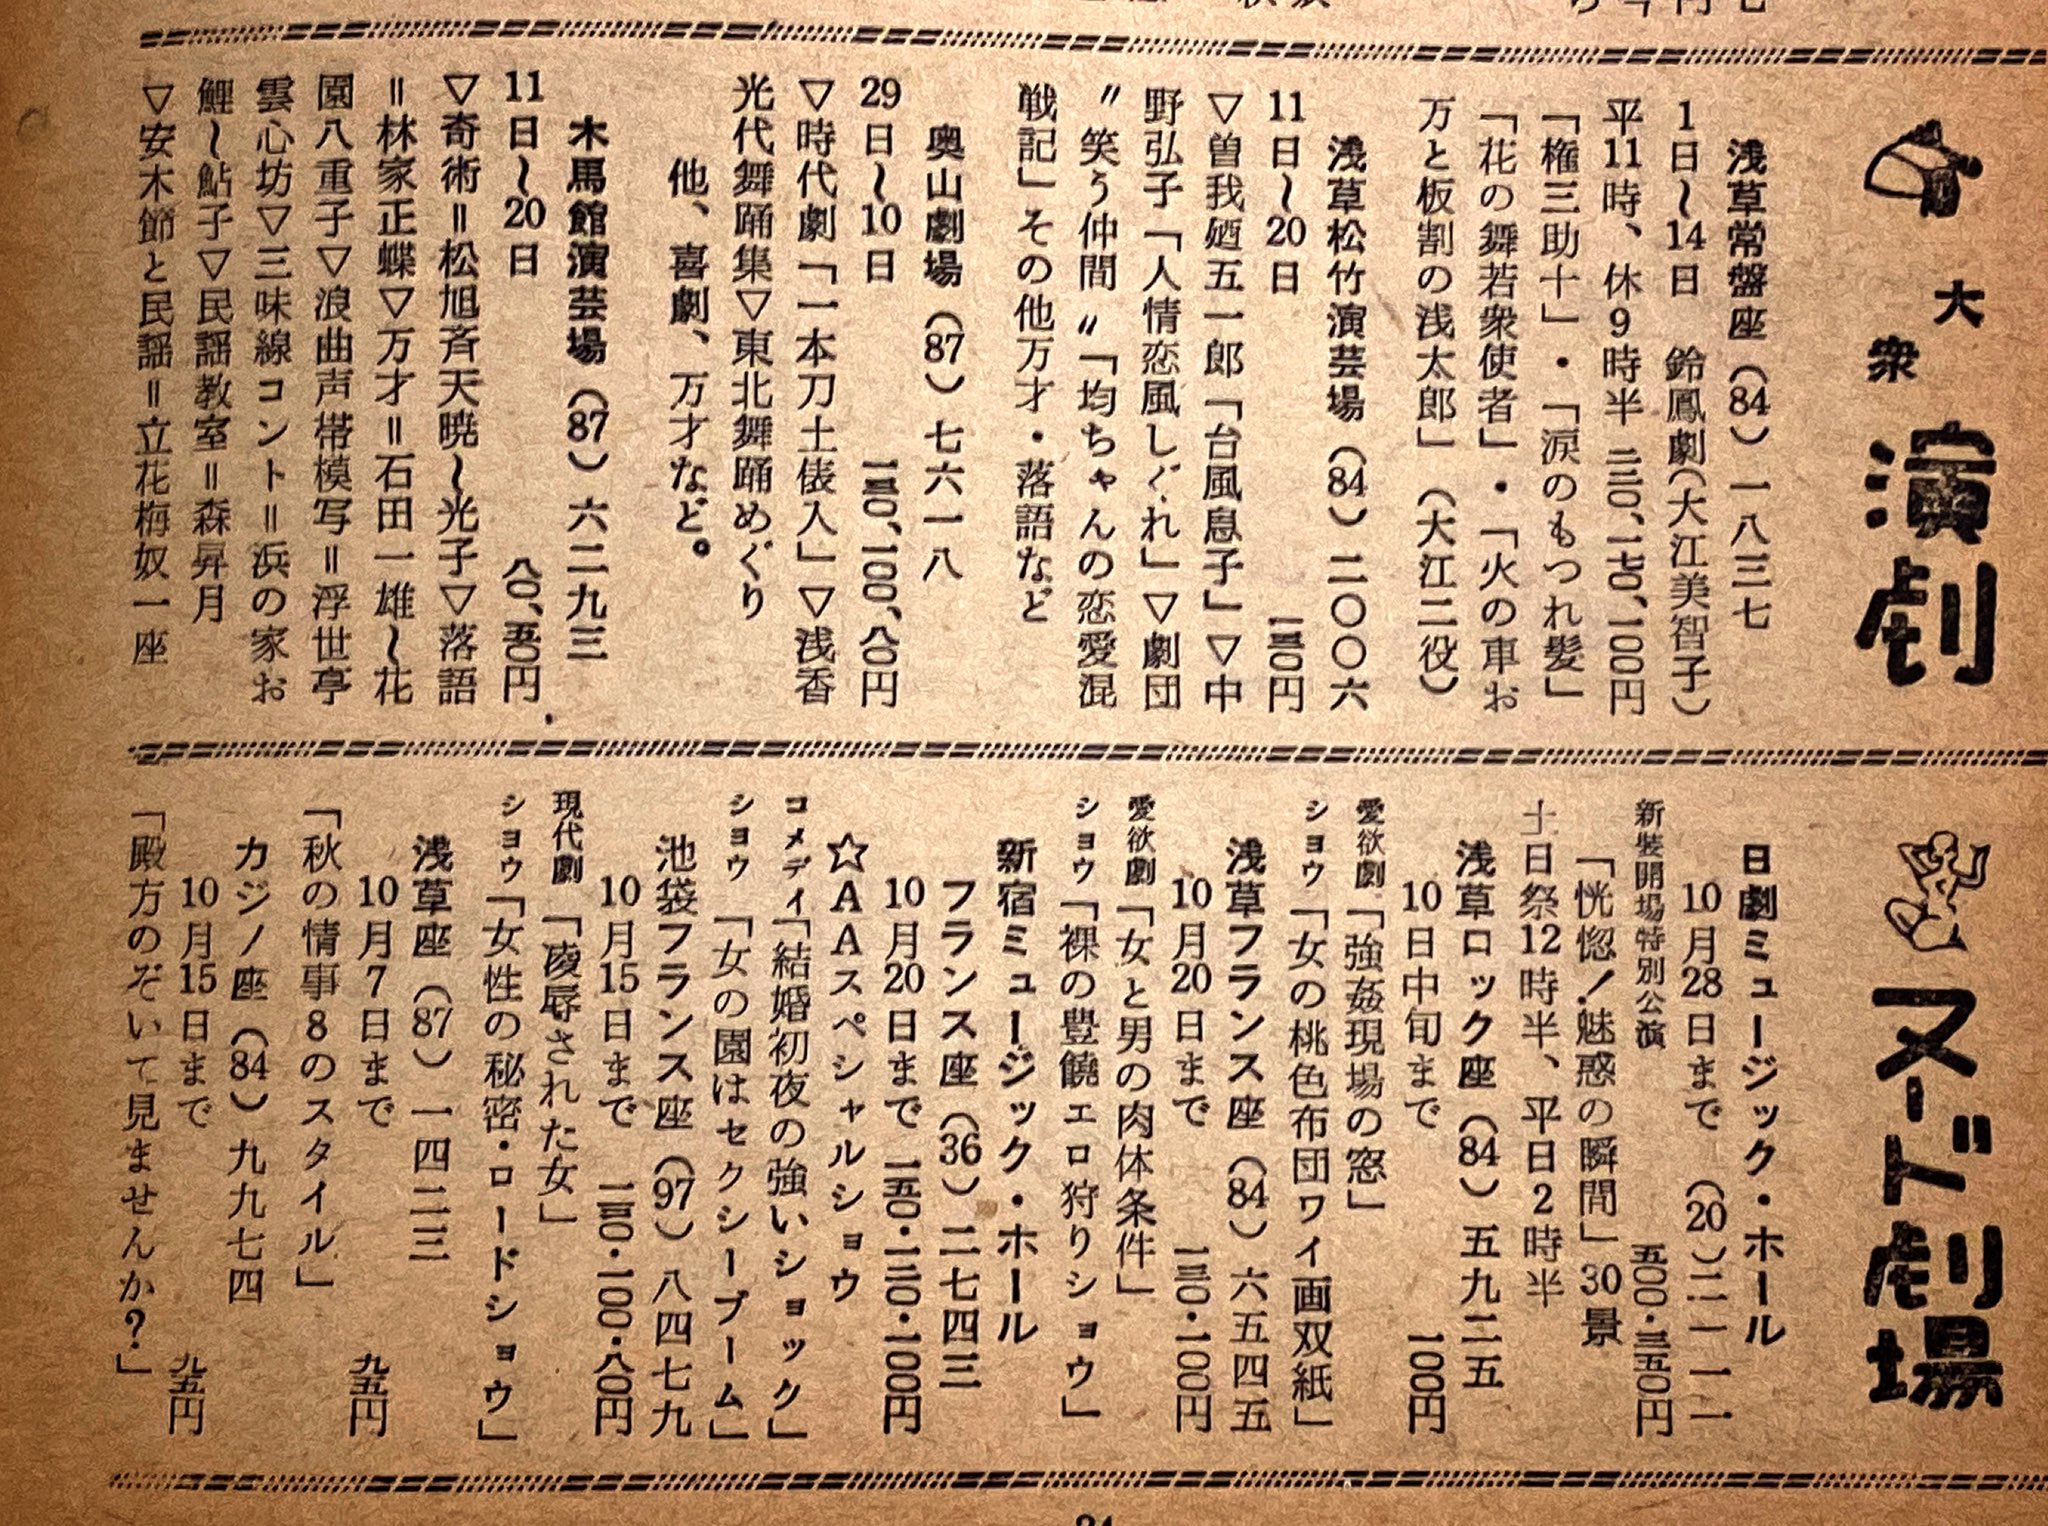 大衆演劇
浅草常盤座（84）一八三七
1日〜14日　鈴鳳劇（大江美智子）
平11時、休9時半　二三〇、一七〇、一〇〇円
「権三助十」・「涙のもつれ髪」
「花の舞若衆使者」・「火の車お
万と板割の浅太郎」（大江二役）
浅草松竹演芸場（84）二〇〇六
11日〜20日　一三〇円
▽曽我廼五一郎「台風息子」▽中
野弘子「人情恋風しぐれ」▽劇団
〝笑う仲間〟「均ちゃんの恋愛混
戦記」その他万才・落語など
奥山劇場（87）七六一八
29日〜10日　一三〇、一〇〇、八〇円
▽時代劇「一本刀土俵入」▽浅香
光代舞踊集▽東北舞踊めぐり
他、喜劇、万才など。
木馬館演芸場（87）六二九三
11日〜20日　八〇、五〇円
▽奇術＝松旭斉天暁〜光子▽落語
＝林家正蝶▽万才＝石田一雄〜花
園八重子▽浪曲声帯模写＝浮世亭
雲心坊▽三味線コント＝浜の家お
鯉〜鮎子▽民謡教室＝森昇月
▽安木節と民謡＝立花梅奴一座
ヌード劇場
日劇ミュージック・ホール
10月28日まで（20）二一一一
新装開場特別公演　五〇〇・三五〇円
「恍惚！魅惑の瞬間」30景
土日祭12時半、平日2時半
浅草ロック座（84）五九二五
10日中旬まで　一〇〇円
愛欲劇「強姦現場の窓」
ショウ「女の桃色布団ワイ画双紙」
浅草フランス座（84）六五四五
10月20日まで　一三〇・一〇〇円
愛欲劇「女と男の肉体条件」
ショウ「裸の豊饒エロ狩りショウ」
新宿ミュージック・ホール
フランス座（36）二七四三
10月20日まで　一五〇・一二〇・一〇〇円
☆AAスペシャルショウ
コメディ「結婚初夜の強いショック」
ショウ「女の園はセクシーブーム」
池袋フランス座（97）八四七九
10月15日まで　一三〇・一〇〇・八〇円
現代劇「凌辱された女」
ショウ「女性の秘密・ロードショウ」
浅草座（87）一四二三
10月7日まで　九五円
「秋の情事8のスタイル」
カジノ座（84）九九七四
10月15日まで　九五円
「殿方のぞいて見ませんか？」